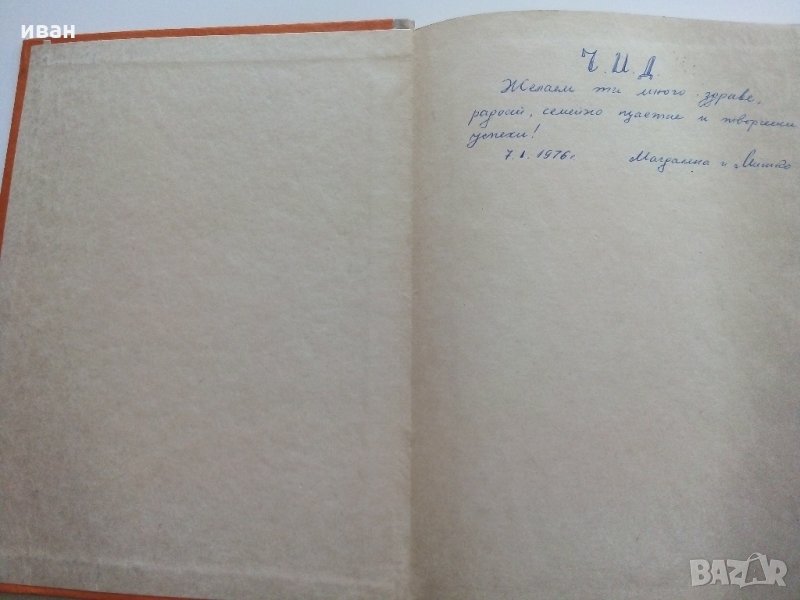 иван
Ч.И.Д.
Желаем ти много здраве,
радост, семейно щастие и творчески
успехи!
7.I.1976г. Магдалена и Мишо
BAZAR